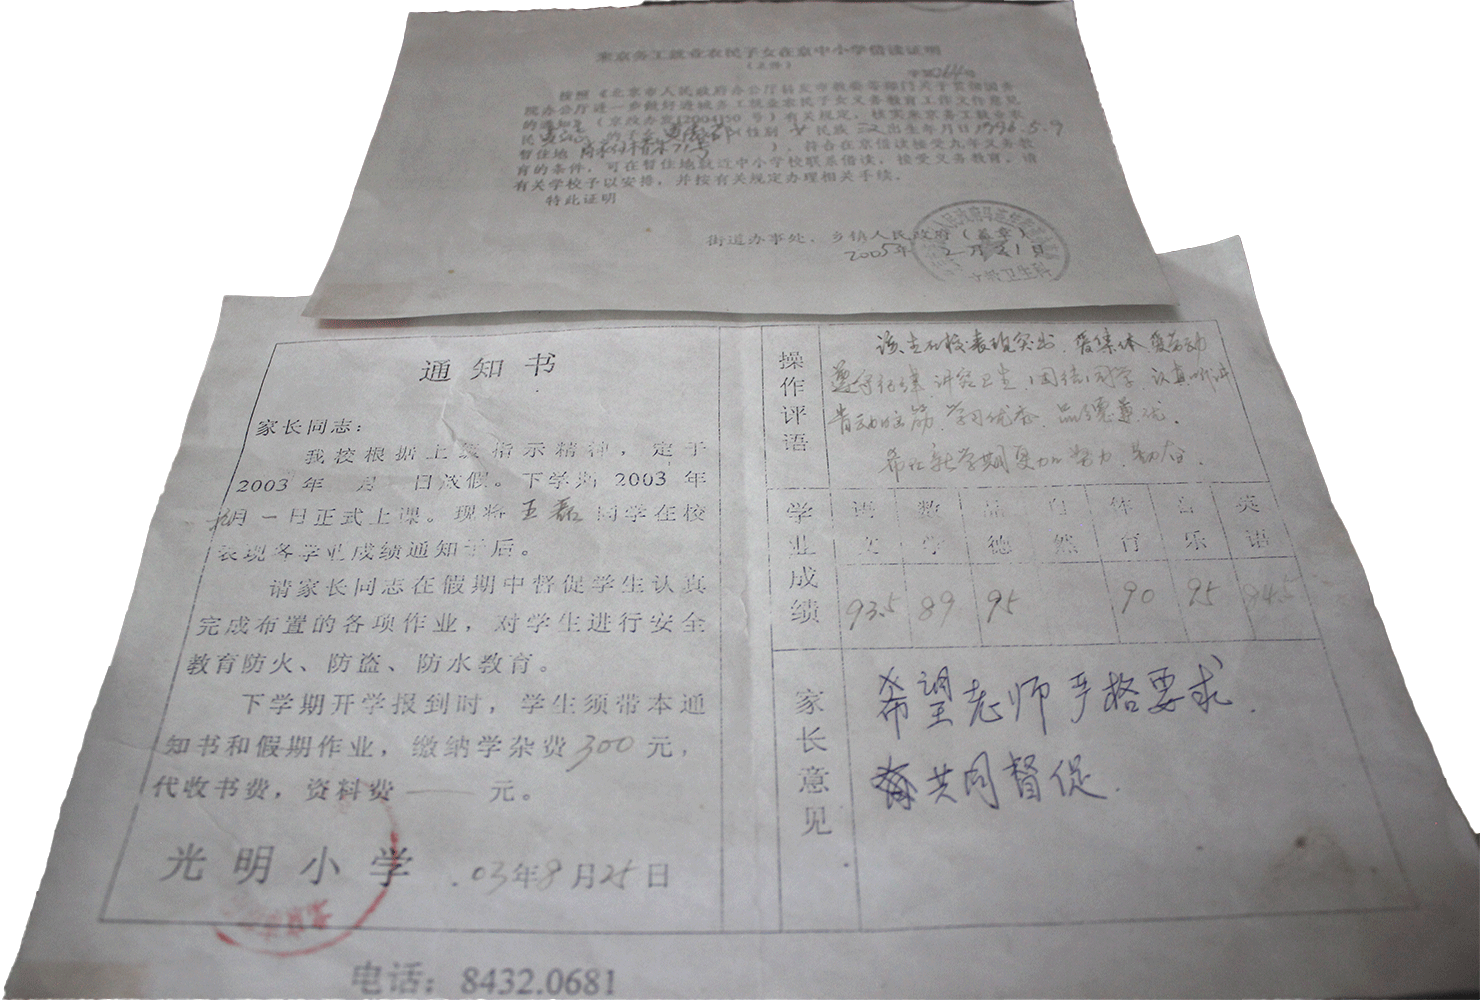 来京务工就业农民子女在京中小学借读证明
（正件）
字第264号
按照《北京市人民政府办公厅转发市教委等部门关于贯彻国务
院办公厅进一步做好进城务工就业农民子女义务教育工作文件意见
的通知》（京政办发[2004]50 号）有关规定，核实来京务工就业农
民 的子女 （性别 女 民族 汉 出生年月日1996.5.9
暂住地 71号 ），符合在京借读接受九年义务教
育的条件，可在暂住地就近中小学校联系借读，接受义务教育，请
有关学校予以安排，并按有关规定办理相关手续。
特此证明
街道办事处、乡镇人民政府（盖章）
2005年 2月21日
通知书
家长同志：
我校根据上级指示精神，定于
2003 年 月 日放假。下学期 2003 年
九月一日正式上课。现将 王磊 同学在校
表现各学业成绩通知于后。
请家长同志在假期中督促学生认真
完成布置的各项作业，对学生进行安全
教育防火、防盗、防水教育。
下学期开学报到时，学生须带本通
知书和假期作业，缴纳学杂费300元，
代收书费，资料费——元。
光明小学 03年8月25日
电话：8432.0681
操作评语
该生在校表现突出，爱集体爱劳动
遵守纪律，讲究卫生，团结同学，认真听讲
肯动脑筋，学习优秀，品德兼优。
希在新学期更加努力，勤奋．
学业成绩
语文 数学 品德 自然 体育 音乐 英语
93.5 89 95 90 95 94.5
家长意见
希望老师严格要求．
共同督促．